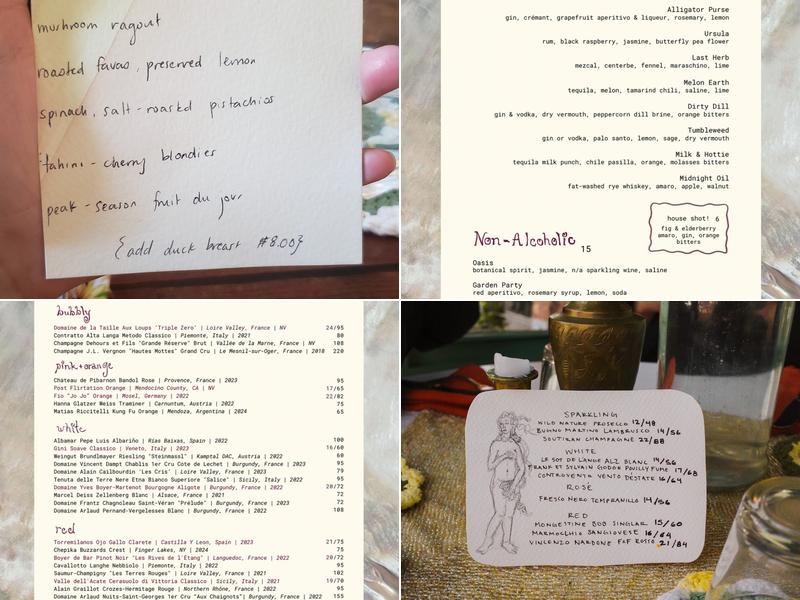 mushroom ragout
roasted favas, preserved lemon
spinach, salt-roasted pistachios
tahini-cherry blondies
peak-season fruit du jour
{add duck breast $8.00}
Alligator Purse
gin, crémant, grapefruit aperitivo & liqueur, rosemary, lemon
Ursula
rum, black raspberry, jasmine, butterfly pea flower
Last Herb
mezcal, centerbe, fennel, maraschino, lime
Melon Earth
tequila, melon, tamarind chili, saline, lime
Dirty Dill
gin & vodka, dry vermouth, peppercorn dill brine, orange bitters
Tumbleweed
gin or vodka, palo santo, lemon, sage, dry vermouth
Milk & Hottie
tequila milk punch, chile pasilla, orange, molasses bitters
Midnight Oil
fat-washed rye whiskey, amaro, apple, walnut
house shot! 6
fig & elderberry
amaro, gin, orange
bitters
Non-Alcoholic 15
Oasis
botanical spirit, jasmine, n/a sparkling wine, saline
Garden Party
red aperitivo, rosemary syrup, lemon, soda
bubbly
Domaine de la Taille Aux Loups 'Triple Zero' | Loire Valley, France | NV 24/95
Contratto Alta Langa Metodo Classico | Piemonte, Italy | 2021 80
Champagne Dehours et Fils "Grande Réserve" Brut | Vallée de la Marne, France | NV 108
Champagne J.L. Vergnon "Hautes Mottes" Grand Cru | Le Mesnil-sur-Oger, France | 2018 220
pink+orange
Château de Pibarnon Bandol Rose | Provence, France | 2023 95
Post Flirtation Orange | Mendocino County, CA | NV 17/65
Fio "Jo Jo" Orange | Mosel, Germany | 2022 22/82
Hanna Glatzer Weiss Traminer | Carnuntum, Austria | 2022 75
Matias Riccitelli Kung Fu Orange | Mendoza, Argentina | 2024 65
white
Albamar Pepe Luis Albariño | Rias Baixas, Spain | 2022 100
Gini Soave Classico | Veneto, Italy | 2023 16/60
Weingut Brundlmayer Riesling "Steinmassl" | Kamptal DAC, Austria | 2022 60
Domaine Vincent Dampt Chablis 1er Cru Cote de Lechet | Burgundy, France | 2023 95
Domaine Alain Cailbourdin 'Les Cris' | Loire Valley, France | 2023 79
Tenuta delle Terre Nere Etna Bianco Superiore "Salice" | Sicily, Italy | 2022 95
Domaine Yves Boyer-Martenot Bourgogne Aligote | Burgundy, France | 2022 20/72
Marcel Deiss Zellenberg Blanc | Alsace, France | 2021 72
Domaine Frantz Chagnoleau Saint-Véran "Prélude" | Burgundy, France | 2023 72
Domaine Arlaud Pernand-Vergelesses Blanc | Burgundy, France | 2022 108
red
Torremilanos Ojo Gallo Clarete | Castilla Y Leon, Spain | 2023 21/75
Chepika Buzzards Crest | Finger Lakes, NY | 2024 75
Boyer de Bar Pinot Noir "Les Rives de l'Étang" | Languedoc, France | 2022 20/72
Cavallotto Langhe Nebbiolo | Piemonte, Italy | 2022 95
Saumur-Champigny "Les Terres Rouges" | Loire Valley, France | 2021 102
Valle dell'Acate Cerasuolo di Vittoria Classico | Sicily, Italy | 2021 19/70
Alain Graillot Crozes-Hermitage Rouge | Northern Rhône, France | 2022 95
Domaine Arlaud Nuits-Saint-Georges 1er Cru "Aux Chaignots"| Burgundy, France | 2022 155
SPARKLING
WILD NATURE PROSECCO 12/48
BUGNO MARTINO LAMBRUSCO 14/56
SOUTIRAN CHAMPAGNE 22/88
WHITE
LE SOT DE L'ANGE ALZ BLANC 14/56
FRANK ET SYLVAIN GODON POUILLY FUME 17/68
CONTROVENTO VENTO D'ESTATE 16/64
ROSÉ
FRESCO NERO TEMPRANILLO 14/56
RED
MONGESTINE BOB SINGLAR 15/60
MARMOCCHIO SANGIOVESE 16/64
VINCENZO NARDONE F&F ROSSO 21/84